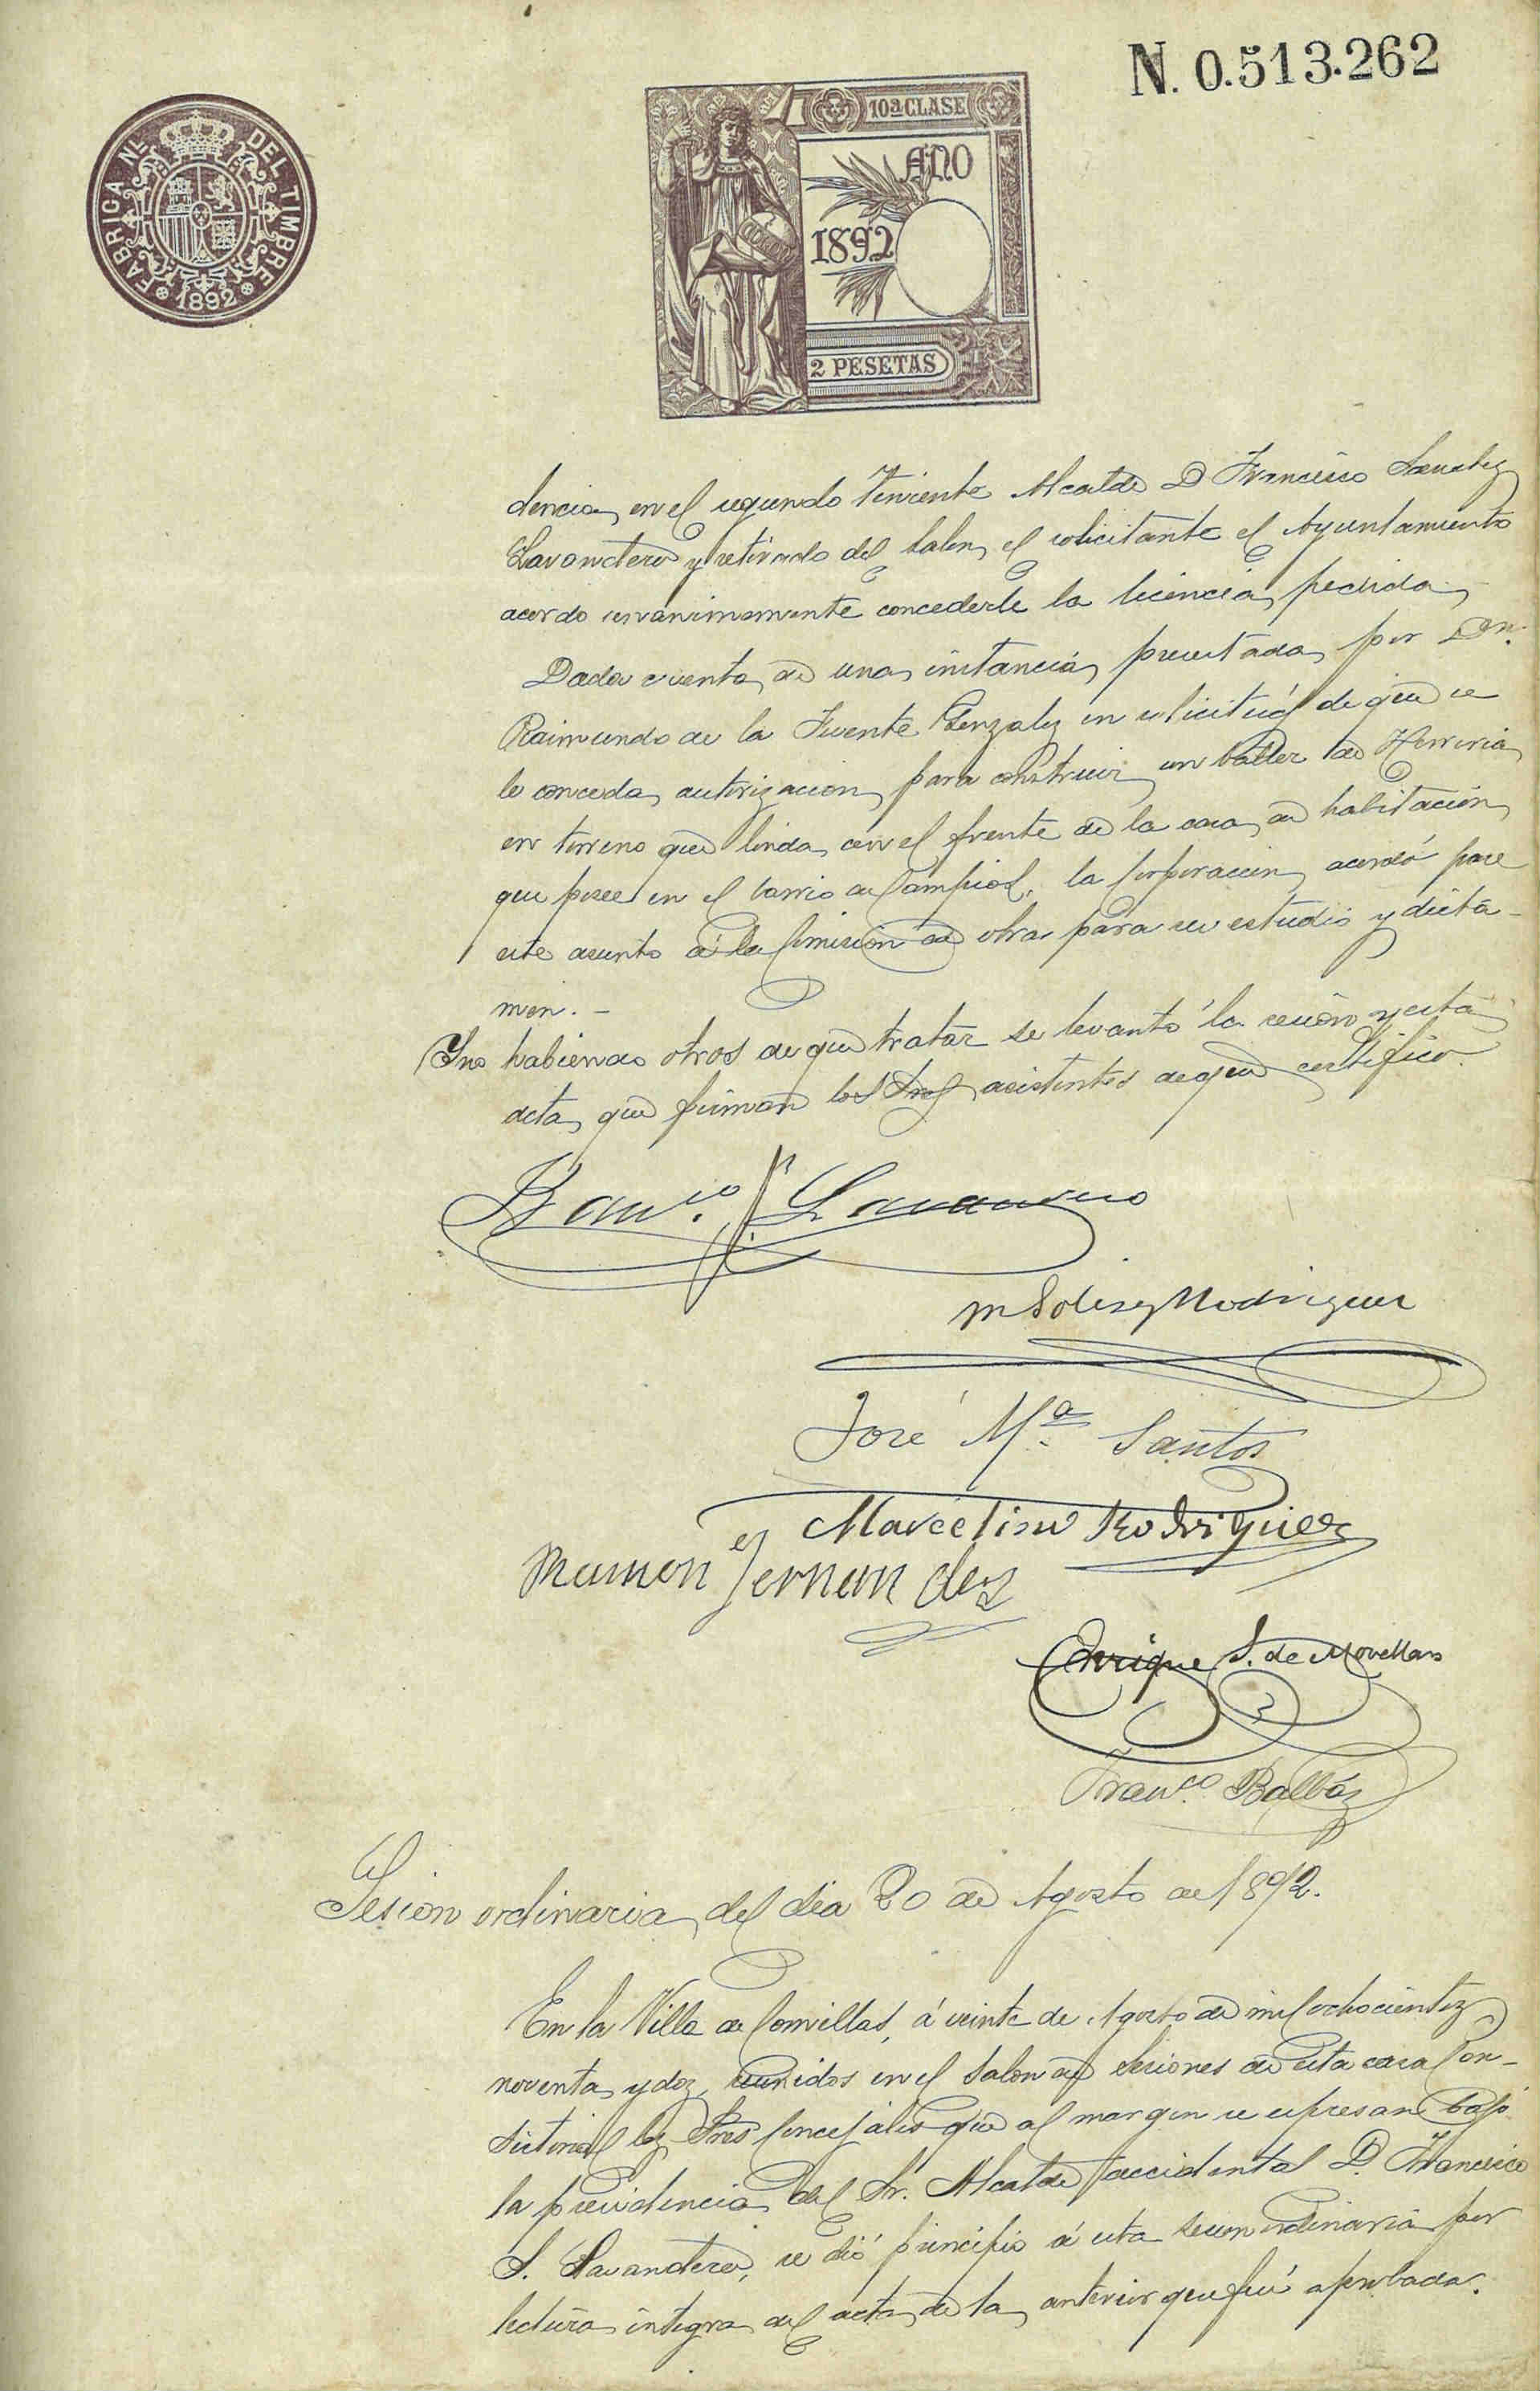 N. 0.513.262
FABRICA NL. DEL TIMBRE
1892
10ª CLASE
AÑO
1892
2 PESETAS
dencia en el segundo Teniente Alcalde D Francisco Sanchez
Lavandero y retirado del salon el solicitante el Ayuntamiento
acordo unanimemente concederle la licencia pedida
Dada cuenta de una instancia presentada por Dn.
Raimundo de la Fuente Gonzalez en solicitud de que se
le conceda autorizacion para construir un taller de Herreria
en terreno que linda con el frente de la casa de habitación
que posee en el barrio de Campios, la Corporacion acordó pase
este asunto á la Comision de obras para su estudio y dictá-
men. -
Y no habiendo otros de que tratar se levantó la sesión y esta
acta que firman los Sres asistentes de que certifico.
Franco. S. Lavandero
M Solis y Rodriguez
José Mª. Santos
Marcelino Rodriguez
Ramon Fernandez
Enrique S. de Movellan
Franco. Balbás
Sesion ordinaria del dia 20 de Agosto de 1892.
En la Villa de Comillas, á veinte de Agosto de mil ochocientoz
noventa y doz, reunidos en el Salon de Sesiones de esta casa Con-
sistorial los Sres Concejales que al margen se expresan bajo
la presidencia del Sr. Alcalde accidental D. Francisco
S. Lavandero, se dió principio á esta sesion ordinaria por
lectura integra del acta de la anterior que fué aprobada.